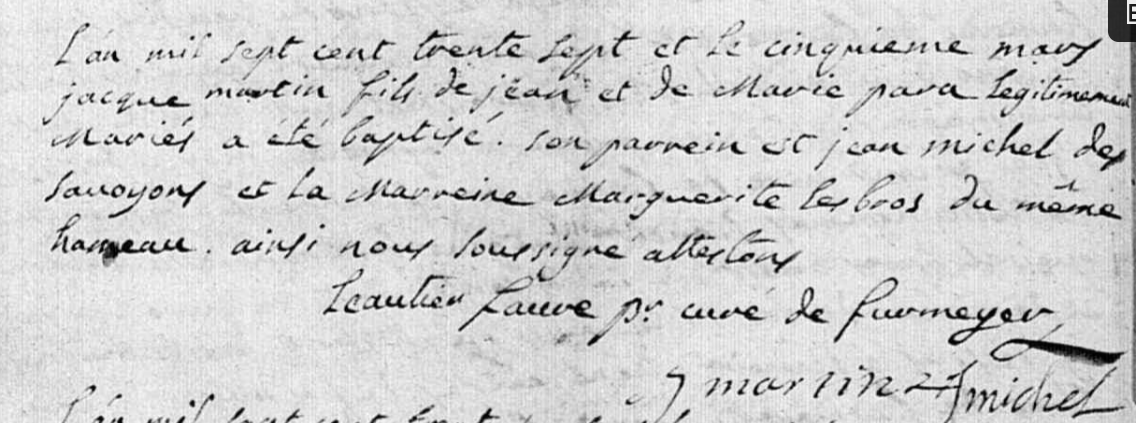 L'an mil sept cent trente sept et le cinquieme mars
jacque martin fils de jean et de Marie para Legitimement
Mariés a été baptisé. son parrein est jean michel des
savoyons et la Marreine Marguerite lesbros du même
hameau. ainsi nous soussigné attestons
Leautier faure pr curé de furmeyer
J martin J michel
L'an mil sept cent